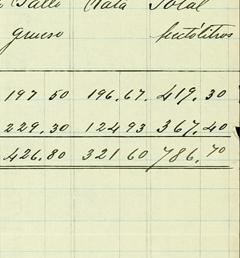 Talle Nata Total
grueso hectólitros
197 50 196.67. 419.30
229.30 124 93 367.40
426.80 321 60 786.70